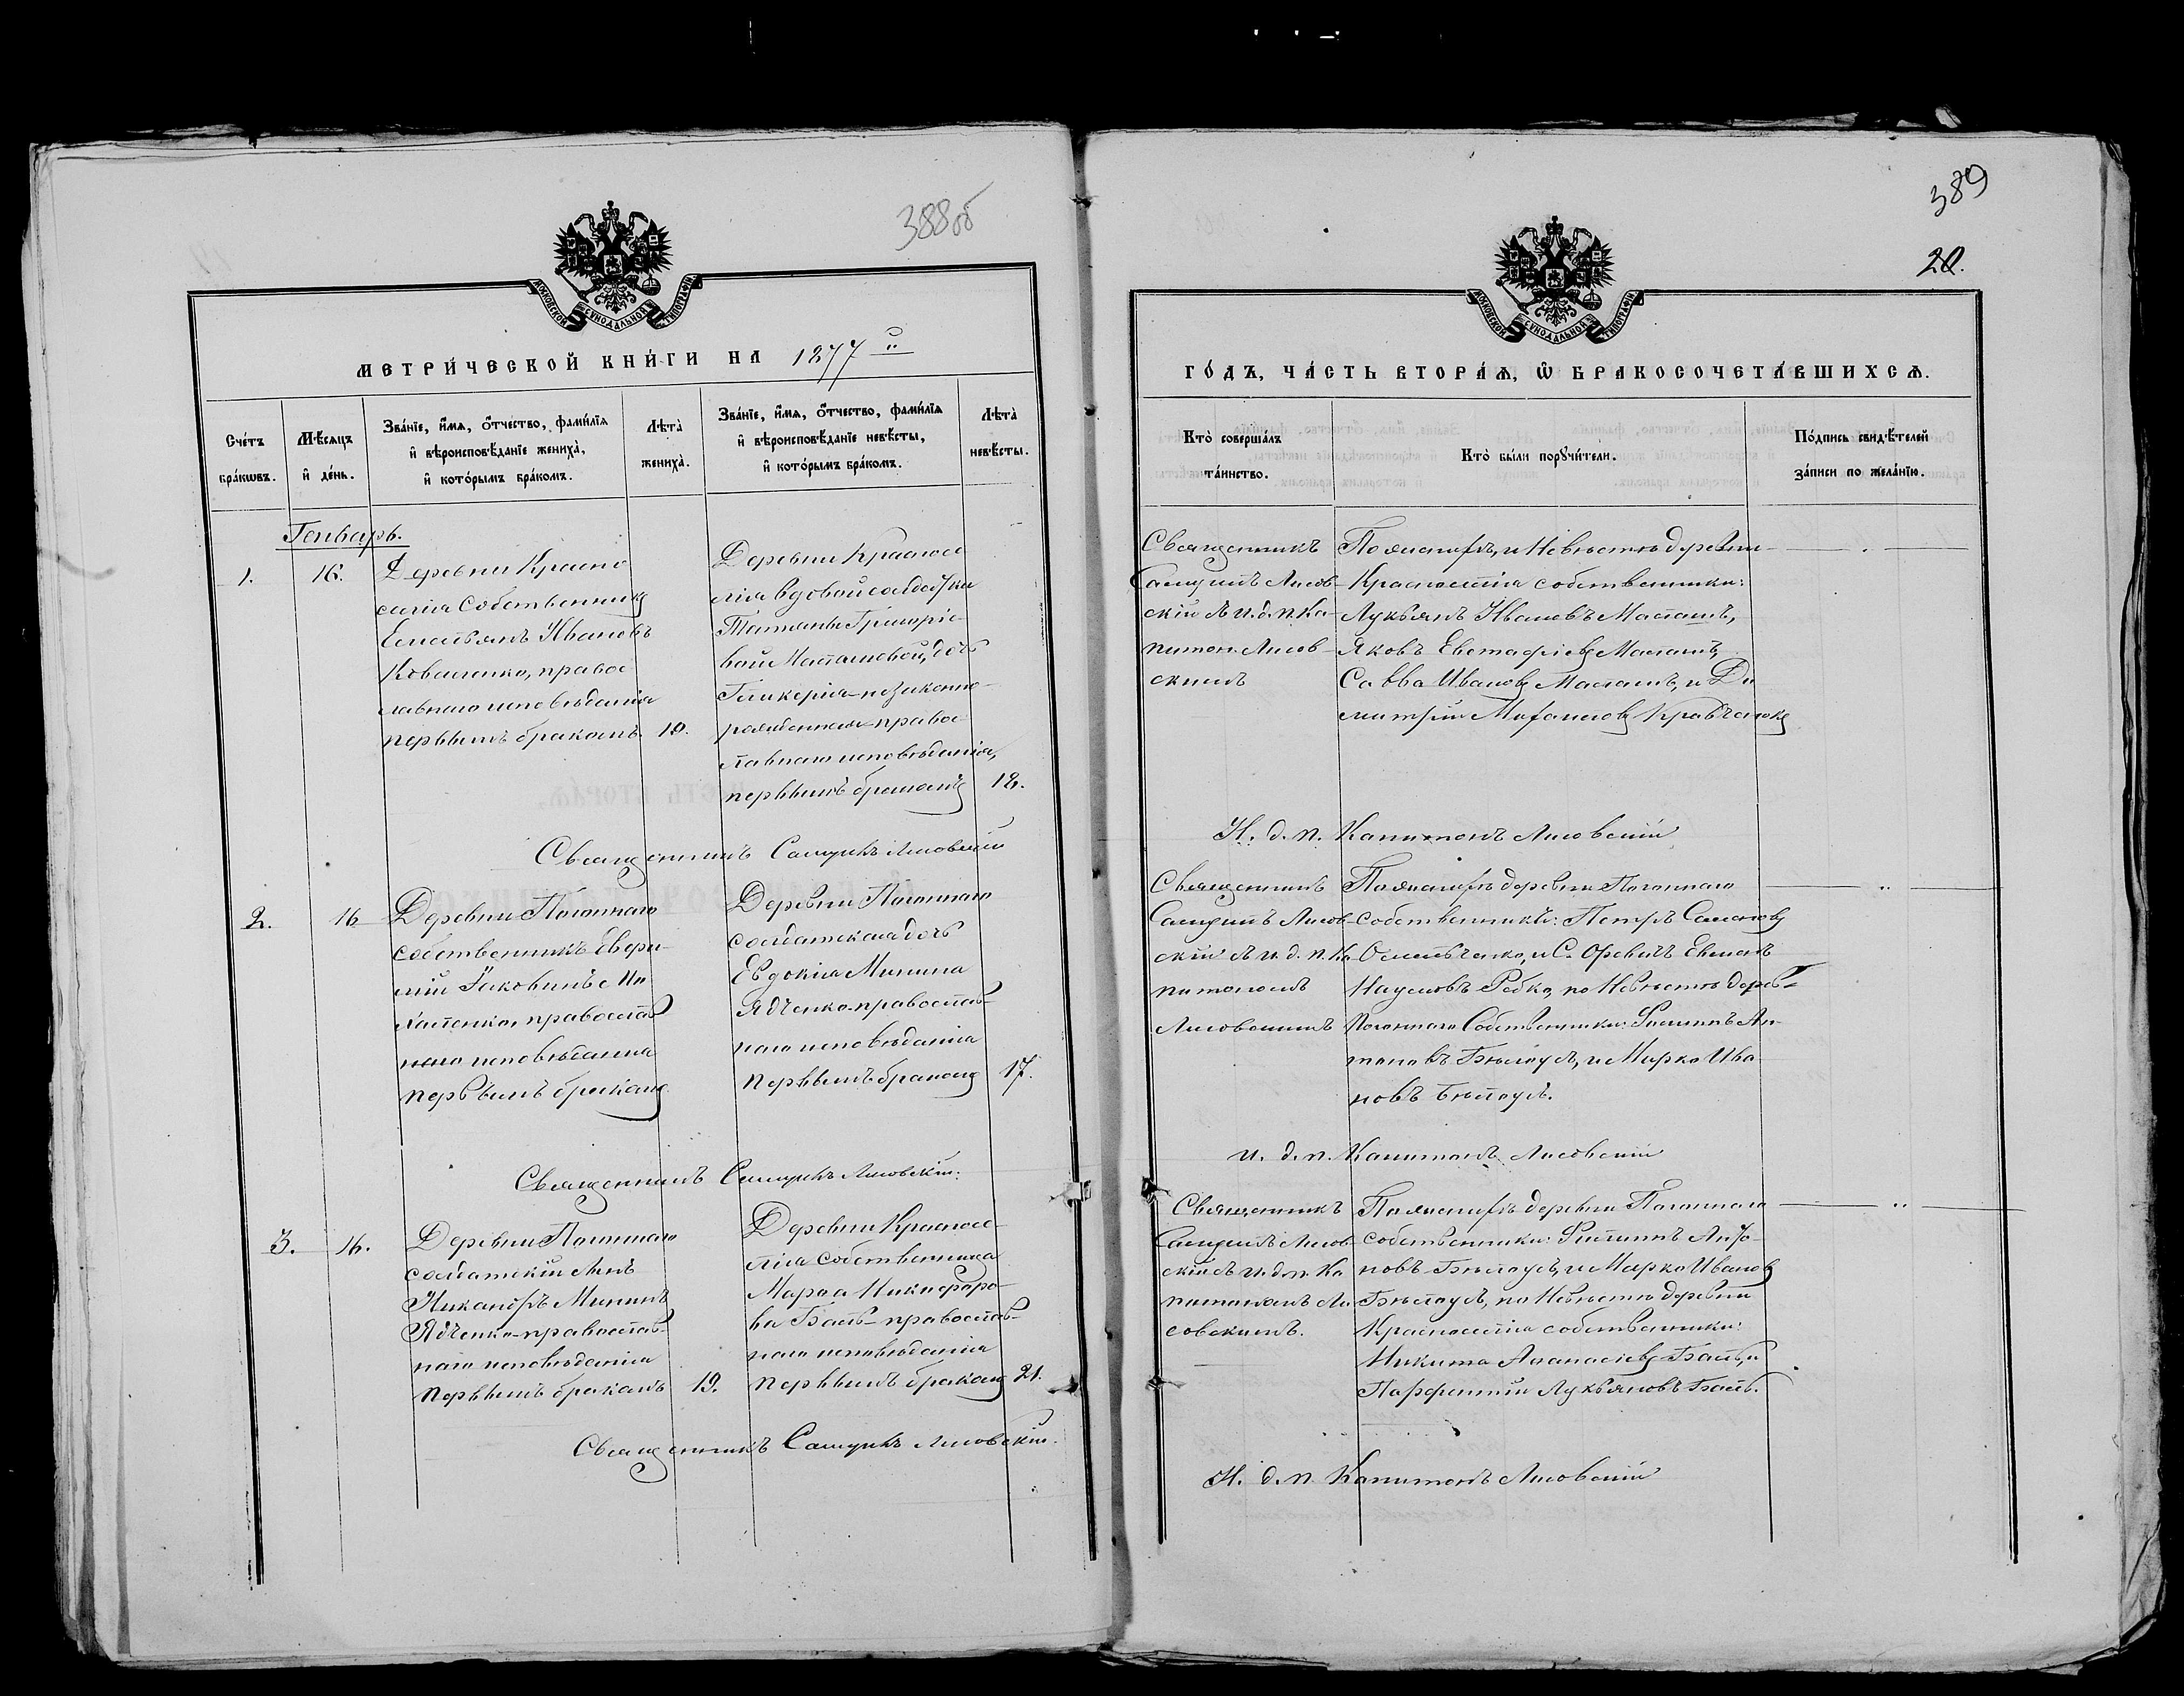 388об
МЕТРИ́ЧЕСКОЙ КНИ́ГИ НА 1877й
Сче́тъ бра́кѡвъ.
Мѣ́сяцъ и҆ де́нь.
Зва́нїе, и҆́мѧ, ѻ҆́тчество, фами́лїѧ и҆ вѣроисповѣ́данїе жениха̀, и҆ кото́рымъ бра́комъ.
Лѣта̀ жениха̀.
Зва́нїе, и҆́мѧ, ѻ҆́тчество, фами́лїѧ и҆ вѣроисповѣ́данїе невѣ́сты, и҆ кото́рымъ бра́комъ.
Лѣта̀ невѣ́сты.
Генварь.
1.
16.
Деревни Красно
селія собственникъ
Емельянъ Ивановъ
Коваленко, правос
лавнаго исповѣданія
первымъ бракомъ
Деревни Красносе
лія вдовой солдатки
Татьяны Григоріе-
вой Маташовой, дочь
Гликерія незаконно-
рожденная правос
лавнаго исповѣданія,
первымъ бракомъ
18.
Священникъ Сампсонъ Лисовскій
2.
16
Деревни Погоннаго
собственникъ
Яковинъ
православ
наго исповѣданія
первымъ бракомъ
Деревни Погоннаго
солдатская дочь
Евдокія Минина
Ядченко православ-
наго исповѣданія
первымъ бракомъ
17.
Священникъ Лисовскій.
3.
16.
Деревни Погоннаго
солдатскій сынъ
Никандръ Мининъ
Ядченко православ-
наго исповѣданія
первымъ бракомъ
19.
Деревни Красносе-
лія собственница
Марѳа Никифоро-
ва Баль православ-
наго исповѣданія
первымъ бракомъ
21.
Священникъ Лисовскій.
389
20.
ГО́ДЪ, ЧА́СТЬ ВТОРА́Ѧ, Ѡ҆ БРАКОСОЧЕТА́ВШИХСѦ.
Кто̀ соверша́лъ та́инство.
Кто̀ были порꙋчи́тели.
По́дпись свидѣ́телей за́писи по жела́нїю.
Священникъ
Лисов-
скій съ и. д. п. Ка-
питон. Лисов-
скимъ
По женихѣ, и Невѣстѣ деревни
Красноселія собственники:
Лукьянъ Ивановъ Маташъ,
Яковъ Евстафіевъ Маташъ,
Савва Ивановъ Маташъ, и Ди
митрій Михайловъ Кравченко
И. д. п. Капитонъ Лисовскій
Священникъ
Лисов-
скій съ и. д. п. Ка
питономъ
Лисовскимъ
По женихѣ деревни Погоннаго
собственники: Петръ Семеновъ
Науменовъ Редко, по Невѣстѣ дерев-
Погоннаго Собственники: Филипъ Ан-
тоновъ Бѣлоусъ, и Марко Ива
новъ Бѣлоусъ.
И. д. п. Капитонъ Лисовскій
Священникъ
Лисов
скій съ и. д. п. Ка
питономъ Ли
совскимъ.
По женихѣ деревни Погоннаго
собственники: Филипъ Анто-
новъ Бѣлоусъ, и Марко Ивановъ
Бѣлоусъ, по Невѣстѣ деревни
Красноселія собственники:
Никита Аѳанасіевъ Баль, и
Парфентій Лукьяновъ Баль.
И. д. п. Капитонъ Лисовскій